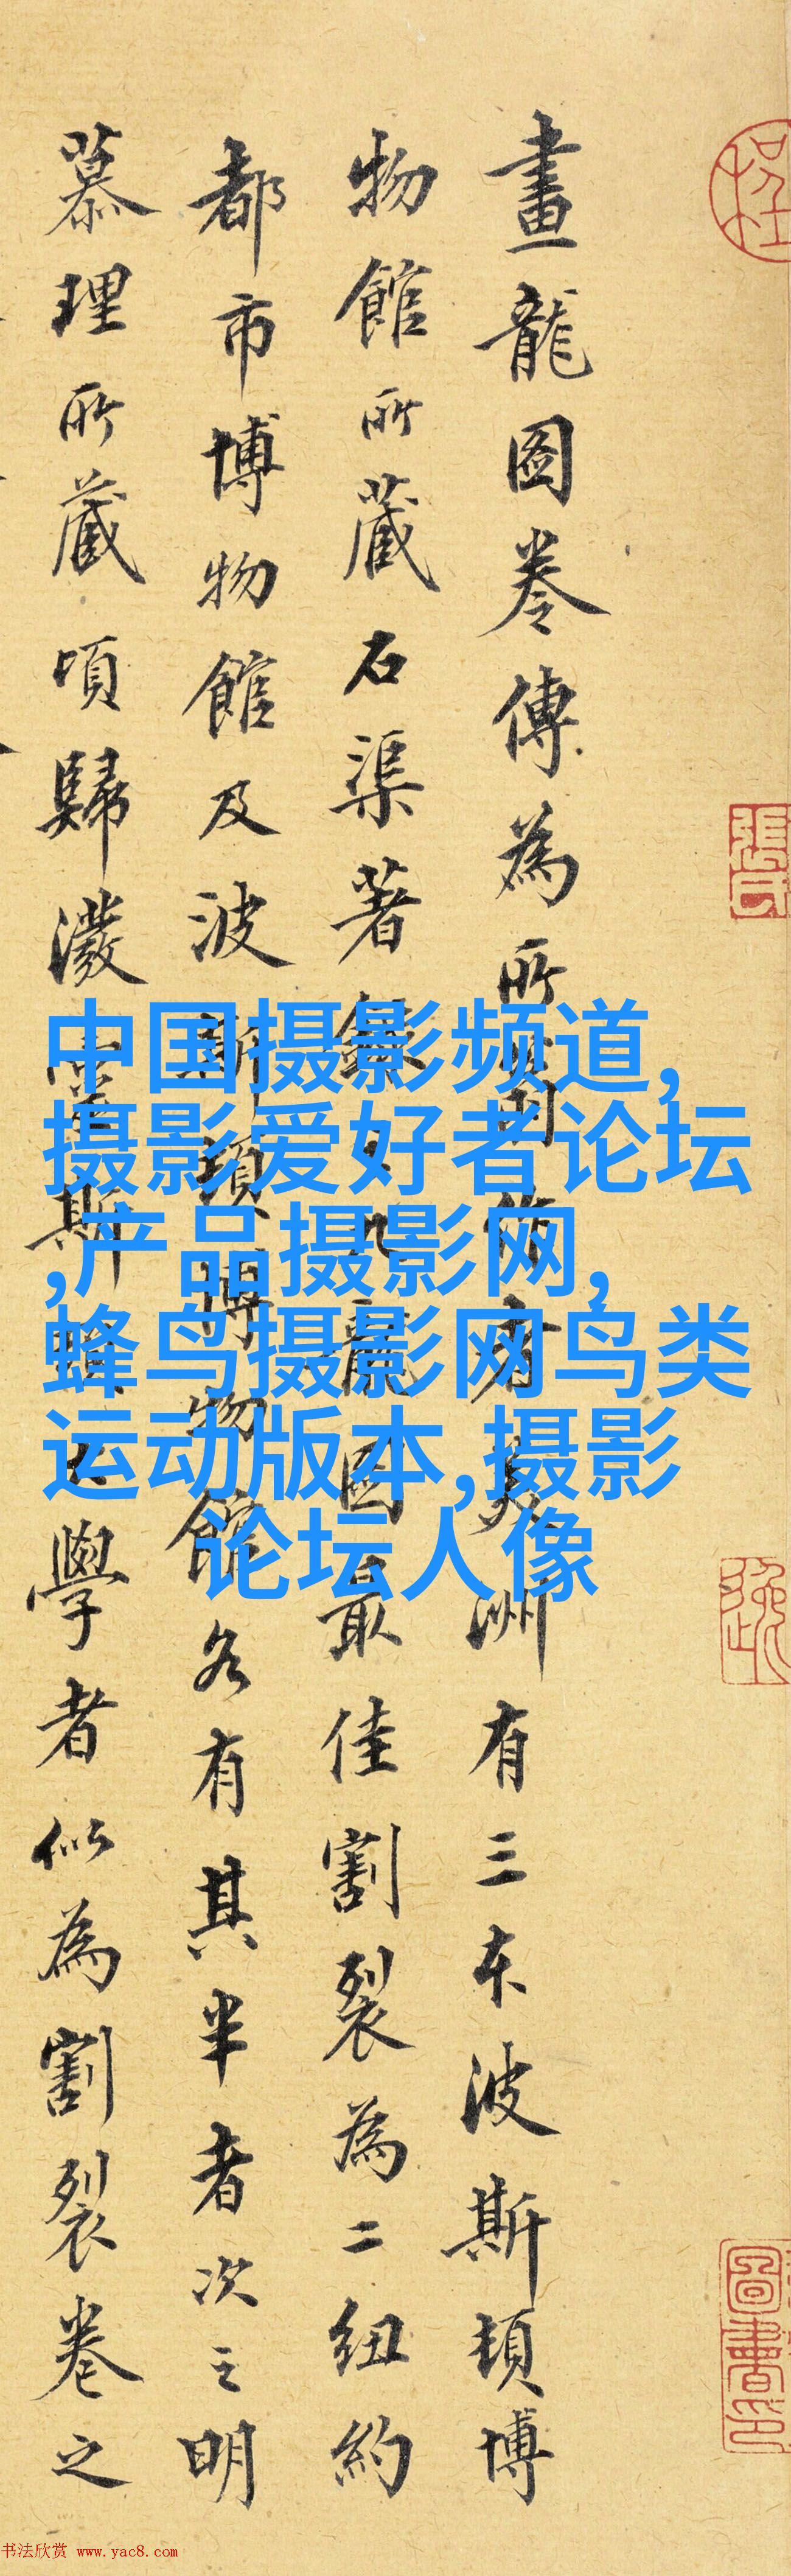 畫龍圖卷傳為所翁作者美洲有三本波斯頓博
物館所藏石渠著錄之九龍圖最佳割裂為二紐約
都市博物館及波斯頓博物館各有其半者次之明
慕理所藏項歸瀿斯大學者似為割裂卷之
中国摄影频道,
摄影爱好者论坛
,产品摄影网,
蜂鸟摄影网鸟类
运动版本,摄影
论坛人像
書印
书法欣赏 www.yac8.com